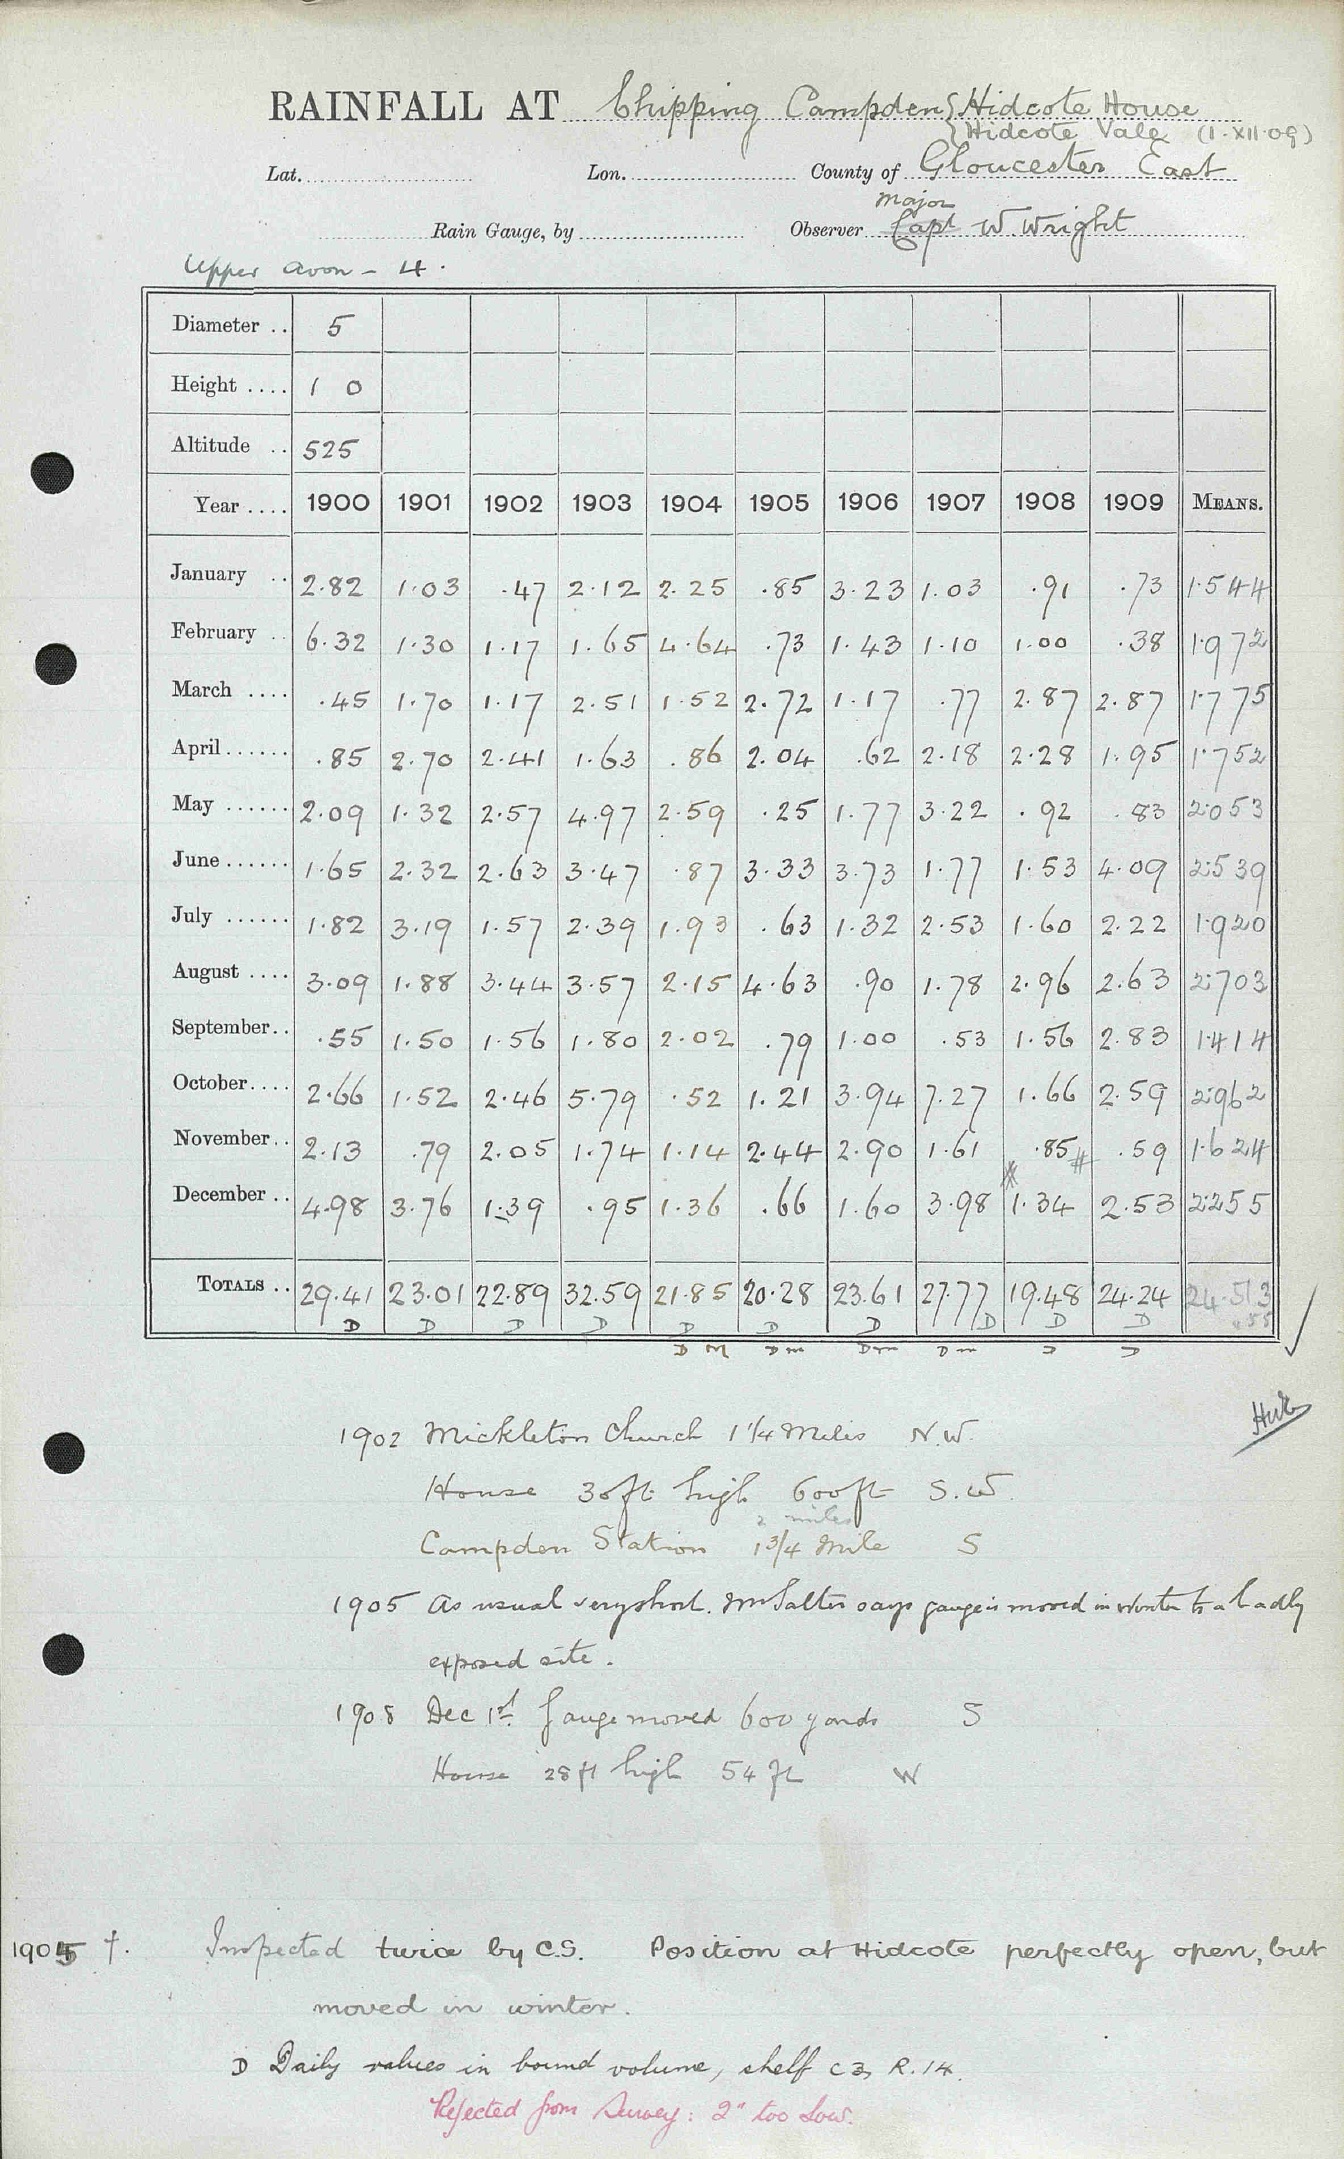 RAINFALL AT Chipping Campden { Hidcote House
{ Hidcote Vale (1·XII·09)
Lat. Lon. County of Gloucester East
Major
Rain Gauge, by Observer Capt W. Wright
Upper Avon - 4.
Diameter .. 5
Height .... 1 0
Altitude .. 525
Year .... 1900 1901 1902 1903 1904 1905 1906 1907 1908 1909 MEANS.
January .. 2.82 1.03 .47 2.12 2.25 .85 3.23 1.03 .91 .73 1.544
February .. 6.32 1.30 1.17 1.65 4.64 .73 1.43 1.10 1.00 .38 1.972
March .... .45 1.70 1.17 2.51 1.52 2.72 1.17 .77 2.87 2.87 1.775
April ...... .85 2.70 2.41 1.63 .86 2.04 .62 2.18 2.28 1.95 1.752
May ...... 2.09 1.32 2.57 4.97 2.59 .25 1.77 3.22 .92 .83 2.053
June ...... 1.65 2.32 2.63 3.47 .87 3.33 3.73 1.77 1.53 4.09 2.539
July ...... 1.82 3.19 1.57 2.39 1.93 .63 1.32 2.53 1.60 2.22 1.920
August .... 3.09 1.88 3.44 3.57 2.15 4.63 .90 1.78 2.96 2.63 2.703
September.. .55 1.50 1.56 1.80 2.02 .79 1.00 .53 1.56 2.83 1.414
October.... 2.66 1.52 2.46 5.79 .52 1.21 3.94 7.27 1.66 2.59 2.962
November.. 2.13 .79 2.05 1.74 1.14 2.44 2.90 1.61 .85 .59 1.624
December .. 4.98 3.76 1.39 .95 1.36 .66 1.60 3.98 1.34 2.53 2.255
TOTALS .. 29.41 23.01 22.89 32.59 21.85 20.28 23.61 27.77 19.48 24.24 24.513
D D D D D D D D D D
D M D m D m D m D D
1902 Mickleton Church 1 1/4 Miles N.W.
House 30ft high 600ft S.W.
2 miles
Campden Station 1 3/4 Mile S
1905 As usual very short. Mr Salter says gauge is moved in Winter to a badly
exposed site.
1908 Dec 1st. Gauge moved 600 yards S
House 28 ft high 54 ft W
1905 †. Inspected twice by C.S. Position at Hidcote perfectly open, but
moved in winter.
D Daily values in bound volume, shelf C3, R.14.
Rejected from Survey: 2" too low.